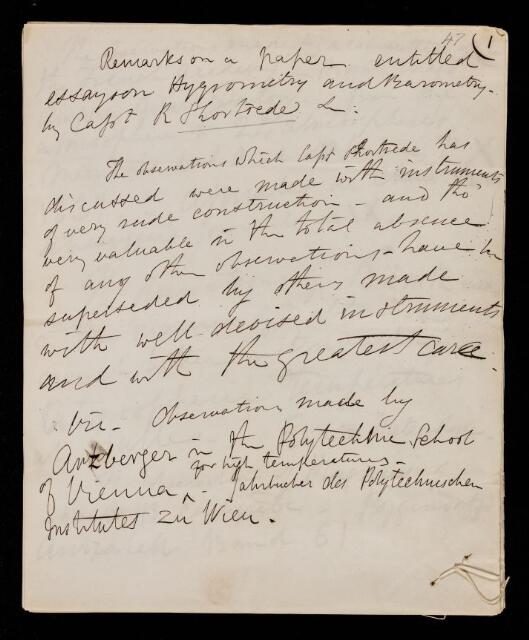 47 1
Remarks on a paper entitled
essays on Hygrometry and Barometry -
by Capt R Shortrede &c.
The observations which Capt Shortrede has
discussed were made with instruments
of very rude construction - and tho'
very valuable in the total absence
of any other observations - have been
superseded by others made
with well devised instruments
and with the greatest care.
viz - Observations made by
Arzberger in the Polytechnic School
for high temperatures -
of Vienna ^ - Jahrbucher des Polytechnischen
Institutes zu Wien.